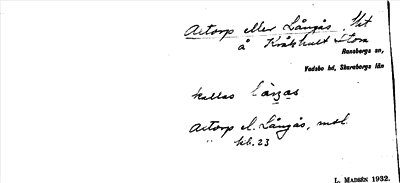 Aetorp eller Långås
å Kråkhult Stom
Ransbergs sn,
Vadsbo hd, Skaraborgs län
kallas Långas
Aetorp el. Långås, mbl.
" kb. 23
L. MADSÉN 1932.